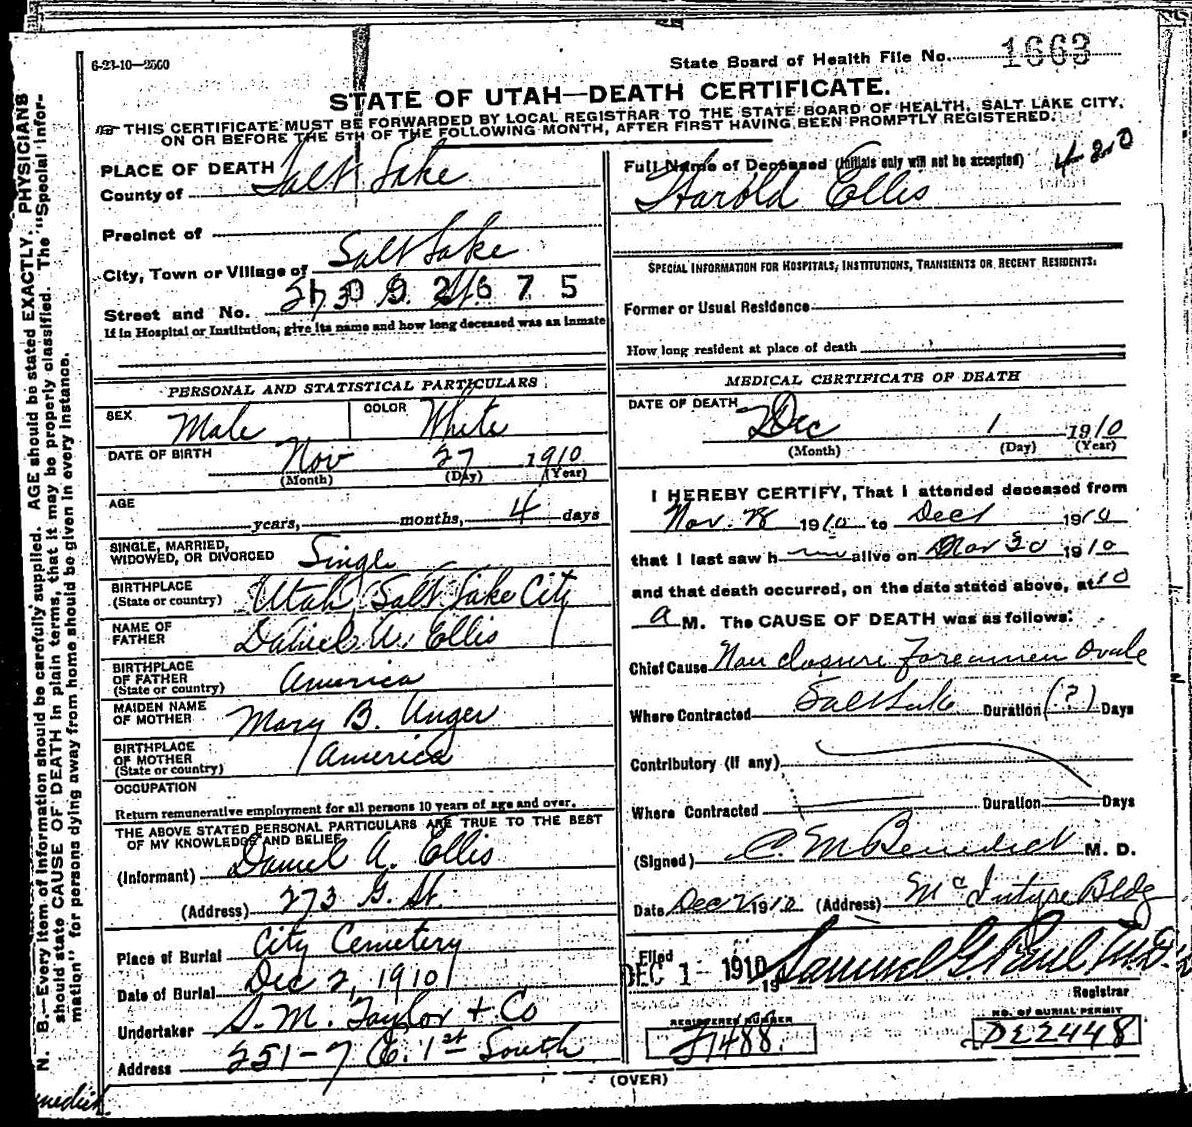 6-23-10—2500
State Board of Health File No. 1663
STATE OF UTAH—DEATH CERTIFICATE.
THIS CERTIFICATE MUST BE FORWARDED BY LOCAL REGISTRAR TO THE STATE BOARD OF HEALTH, SALT LAKE CITY,
ON OR BEFORE THE 5TH OF THE FOLLOWING MONTH, AFTER FIRST HAVING BEEN PROMPTLY REGISTERED.
PLACE OF DEATH
County of Salt Lake
Precinct of
City, Town or Village of Salt Lake
Street and No. 273 G. St
09 2 6 7 5
If in Hospital or Institution, give its name and how long deceased was an inmate
PERSONAL AND STATISTICAL PARTICULARS
SEX Male COLOR White
DATE OF BIRTH Nov 27 1910
(Month) (Day) (Year)
AGE years, months, 4 days
SINGLE, MARRIED,
WIDOWED, OR DIVORCED Single
BIRTHPLACE
(State or country) Utah, Salt Lake City
NAME OF
FATHER Daniel A. Ellis
BIRTHPLACE
OF FATHER
(State or country) America
MAIDEN NAME
OF MOTHER Mary B. Unger
BIRTHPLACE
OF MOTHER
(State or country) America
OCCUPATION
Return remunerative employment for all persons 10 years of age and over.
THE ABOVE STATED PERSONAL PARTICULARS ARE TRUE TO THE BEST
OF MY KNOWLEDGE AND BELIEF
(Informant) Daniel A. Ellis
(Address) 273 G. St.
Place of Burial City Cemetery
Date of Burial Dec 2, 1910
Undertaker S. M. Taylor + Co
Address 251-7 E. 1st South
Full Name of Deceased (Initials only will not be accepted) 420
Harold Ellis
SPECIAL INFORMATION FOR HOSPITALS, INSTITUTIONS, TRANSIENTS OR RECENT RESIDENTS:
Former or Usual Residence
How long resident at place of death
MEDICAL CERTIFICATE OF DEATH
DATE OF DEATH Dec 1 1910
(Month) (Day) (Year)
I HEREBY CERTIFY, That I attended deceased from
Nov. 28 1910 to Dec 1 1910
that I last saw h im alive on Nov 30 1910
and that death occurred, on the date stated above, at 10
a M. The CAUSE OF DEATH was as follows:
Chief Cause Non closure Foreamen Ovale
Where Contracted Salt Lake Duration (?) Days
Contributory (if any)
Where Contracted Duration Days
(Signed) C. M Benedict M. D.
Date Dec 2 1910 (Address) McIntyre Bldg
Filed DEC 1 - 1910 19 Samuel G. Paul M.D.
Registrar
REGISTERED NUMBER
21488.
NO. OF BURIAL PERMIT
DE2448
(OVER)
N. B.—Every item of information should be carefully supplied. AGE should be stated EXACTLY. PHYSICIANS
should state CAUSE OF DEATH in plain terms, that it may be properly classified. The "Special Infor-
mation" for persons dying away from home should be given in every instance.